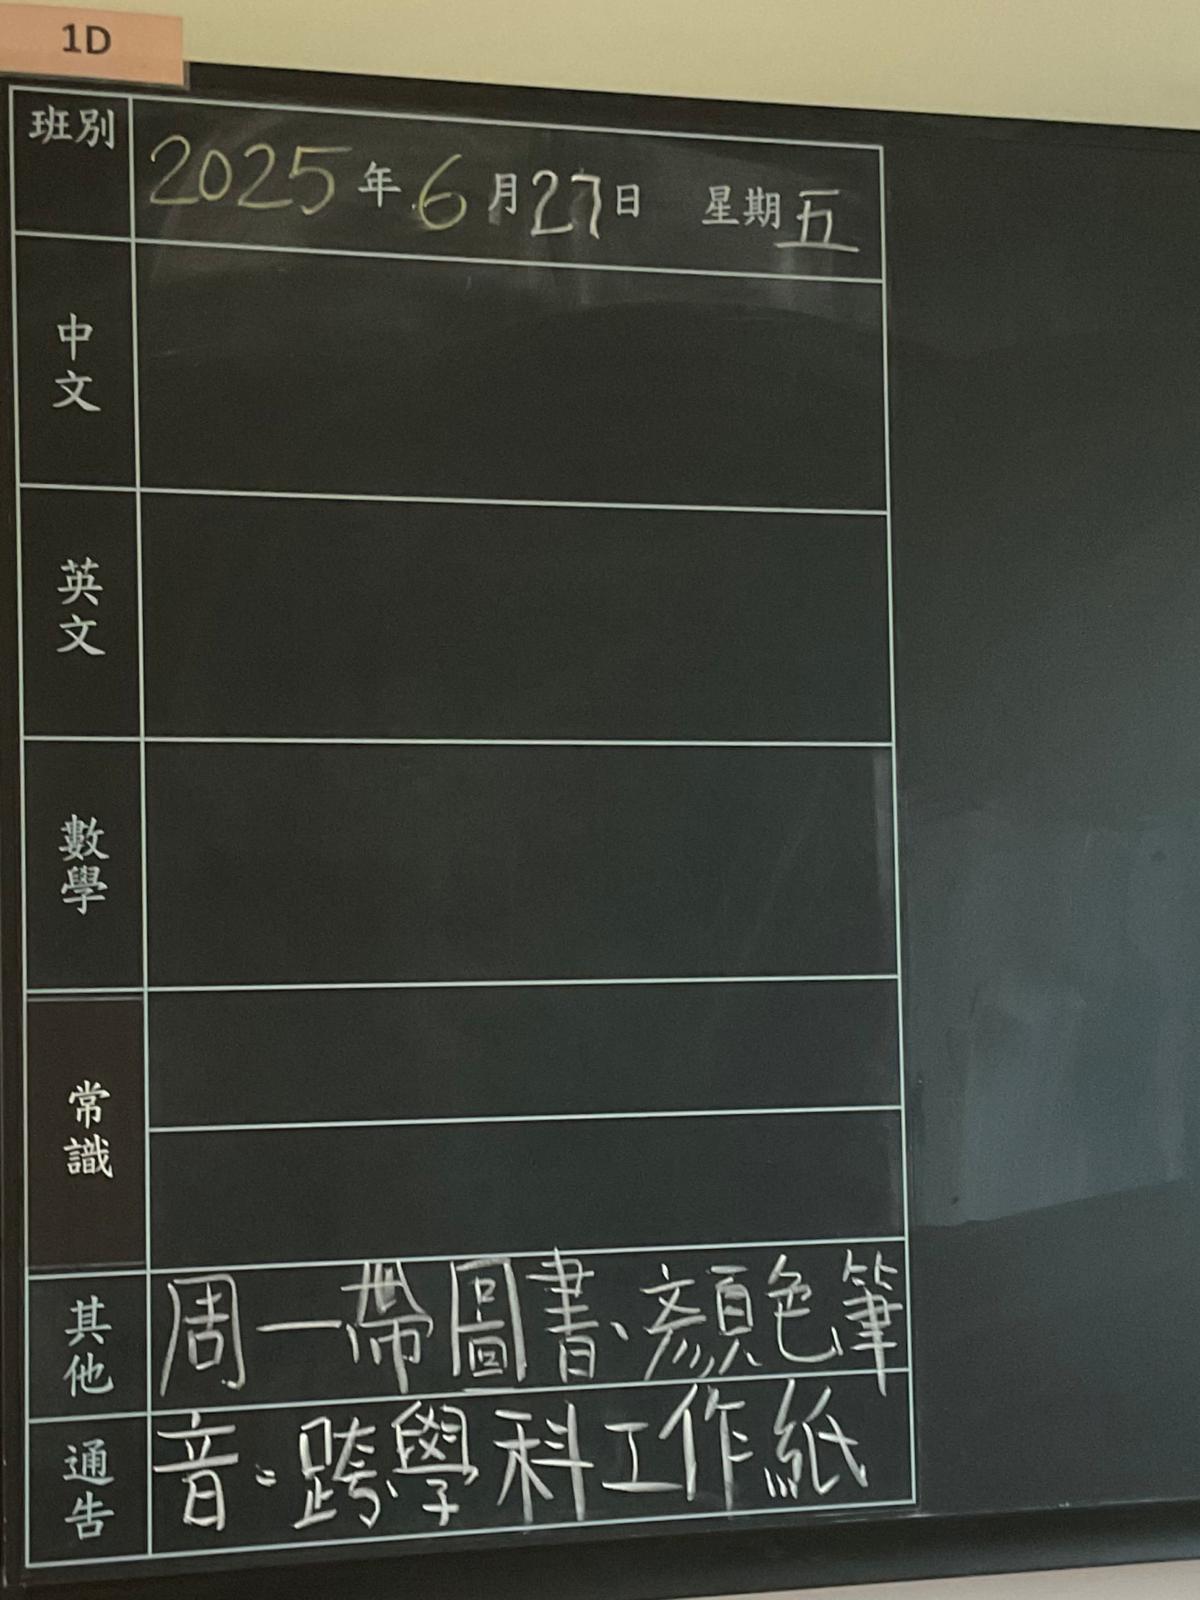 1D
班別 2025年6月27日 星期五
中文
英文
數學
常識
其他 周一帶圖書、顏色筆
通告 音:跨學科工作紙